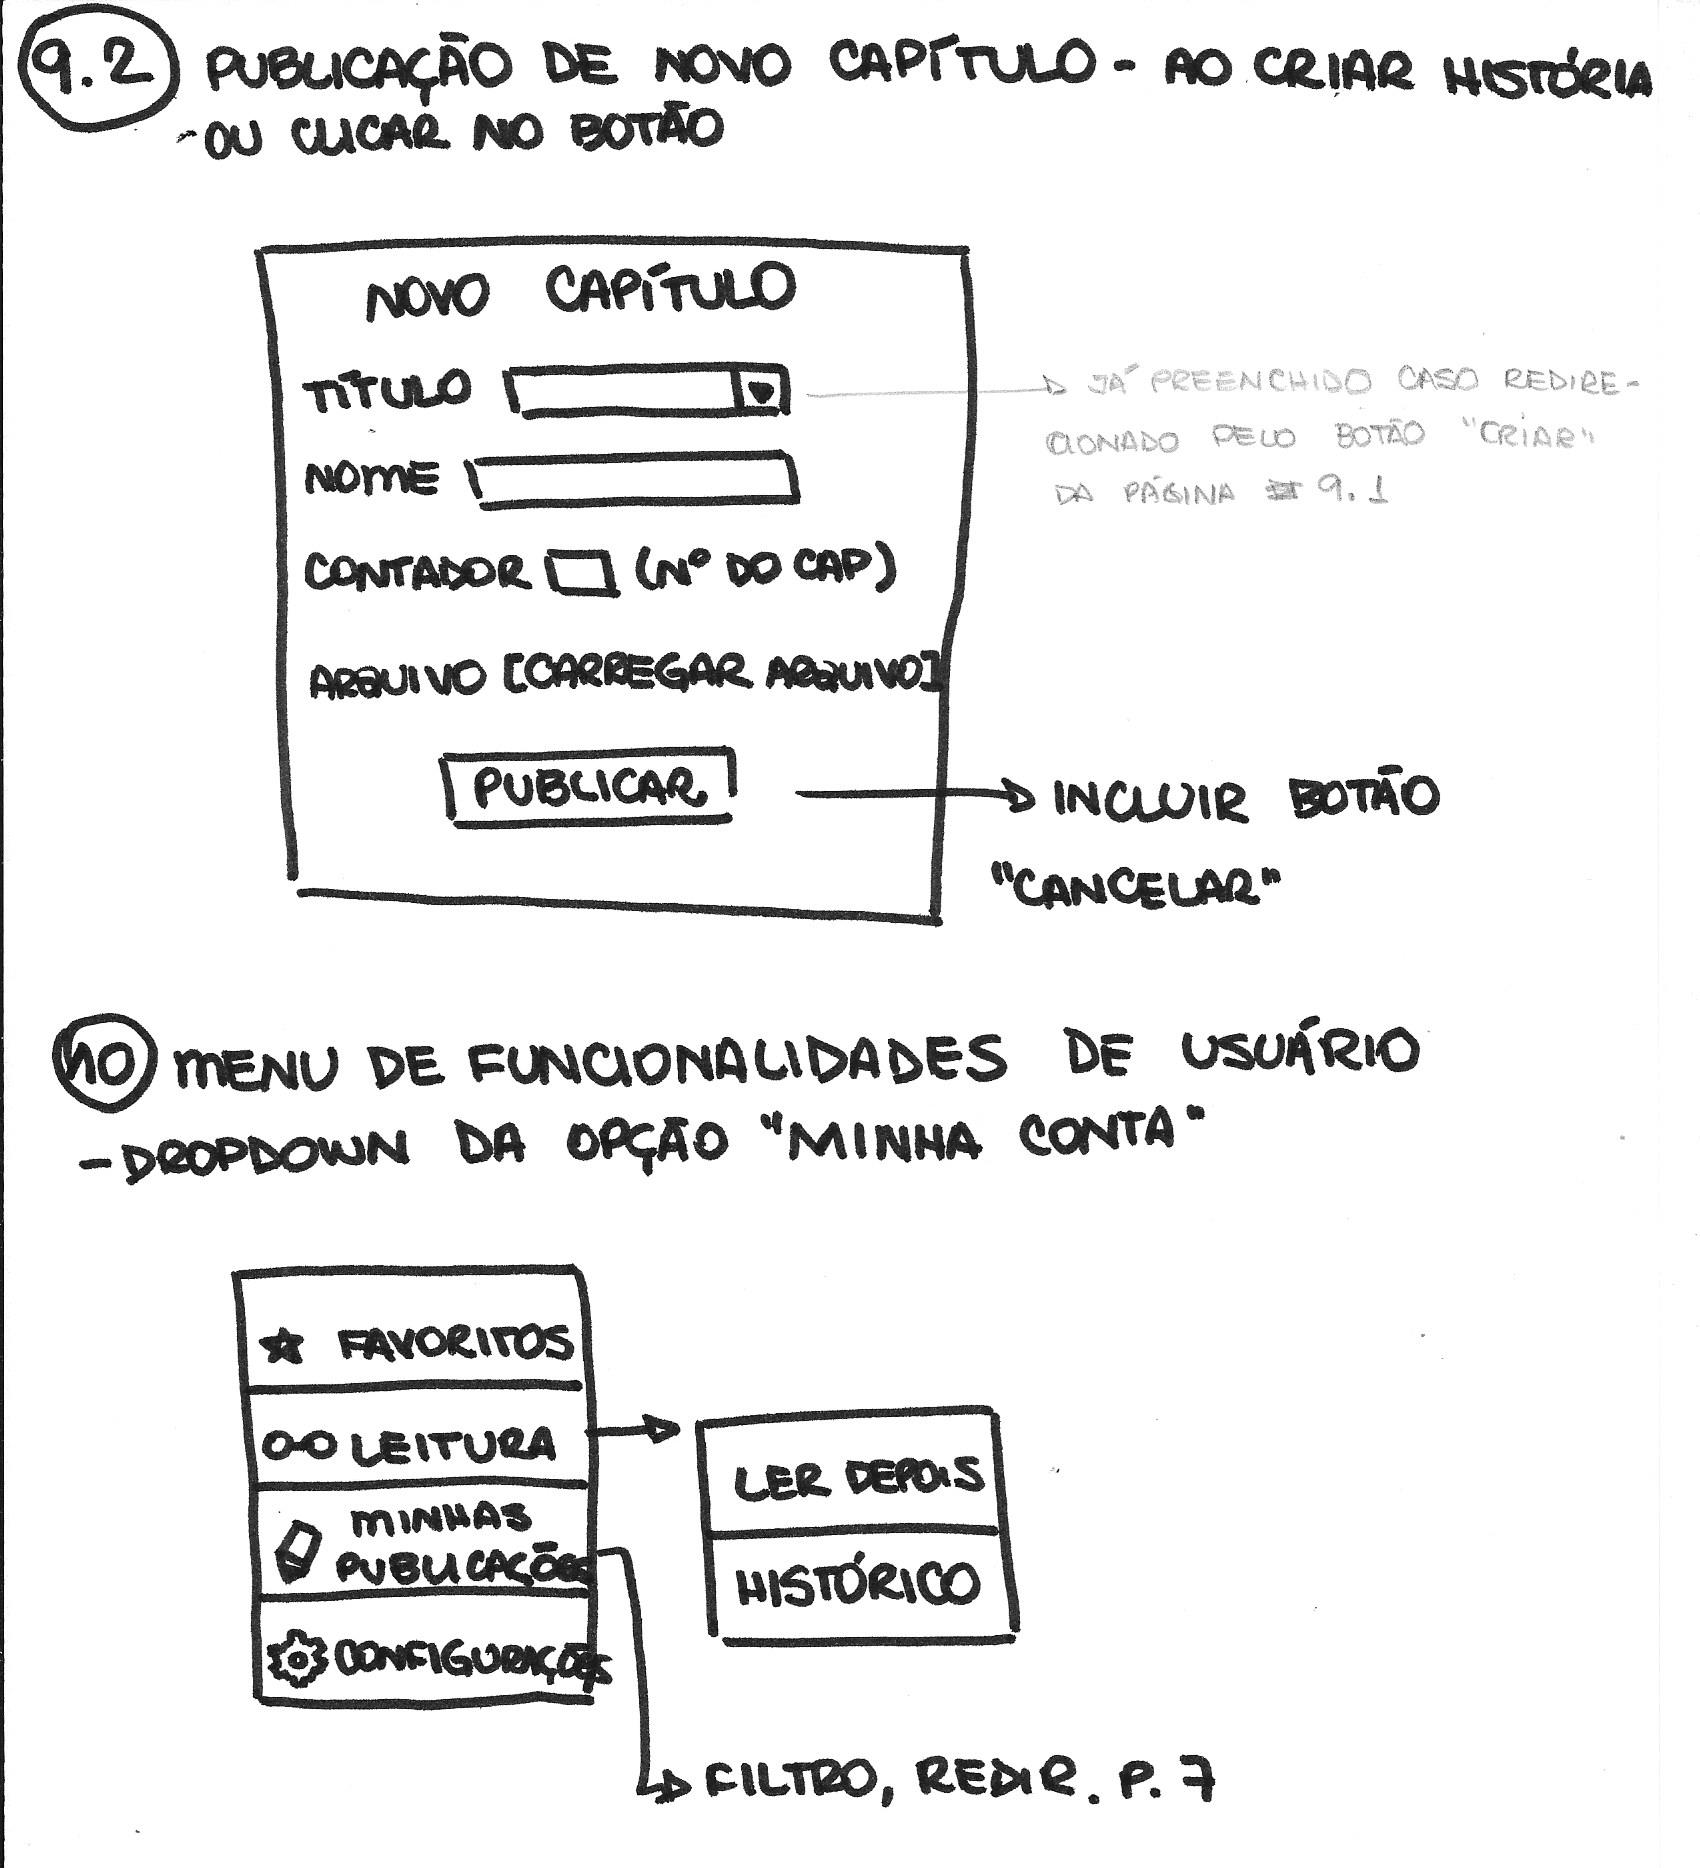 9.2 PUBLICAÇÃO DE NOVO CAPÍTULO - AO CRIAR HISTÓRIA
- OU CLICAR NO BOTÃO
NOVO CAPÍTULO
TÍTULO
JÁ PREENCHIDO CASO REDIRE-
CIONADO PELO BOTÃO "CRIAR"
DA PÁGINA 9.1
NOME
CONTADOR (Nº DO CAP)
ARQUIVO [CARREGAR ARQUIVO]
PUBLICAR
INCLUIR BOTÃO
"CANCELAR"
10 MENU DE FUNCIONALIDADES DE USUÁRIO
- DROPDOWN DA OPÇÃO "MINHA CONTA"
FAVORITOS
LEITURA
LER DEPOIS
HISTÓRICO
MINHAS
PUBLICAÇÕES
CONFIGURAÇÕES
FILTRO, REDIR. P. 7